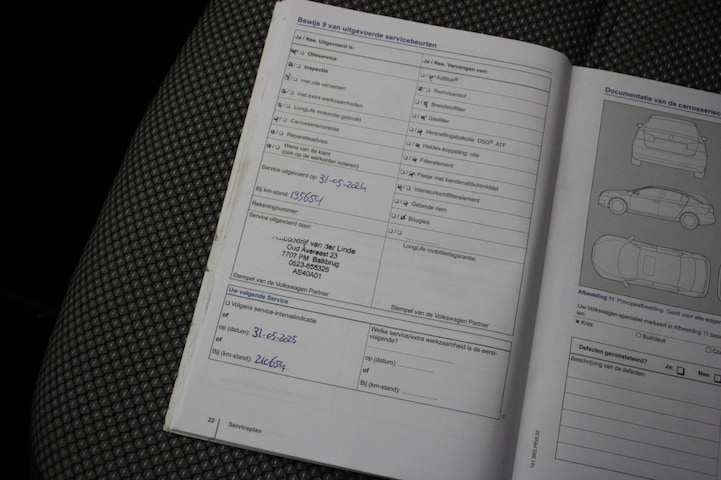 Bewijs 9 van uitgevoerde servicebeurten
Ja / Nee. Uitgevoerd is:
Olieservice
Inspectie
met olie verversen
met extra werkzaamheden
LongLife motorolie gebruikt
Carrosseriecontrole
Reparatieadvies
Wens van de klant
(ook op de werkorder noteren)
Service uitgevoerd op: 31-05-2024
Bij km-stand: 195654
Rekeningnummer:
Service uitgevoerd door:
van der Linde
Oud Avereest 23
7707 PM Balkbrug
AE40A01
Stempel van de Volkswagen Partner
Ja / Nee. Vervangen van:
AdBlue®
Remvloeistof
Brandstoffilter
Gasfilter
Versnellingsbakolie: DSG®, ATF
Haldex-koppeling: olie
Filterelement
Flesje met bandenafdichtmiddel
Interieurluchtfilterelement
Getande riem
Bougies
LongLife mobiliteitsgarantie:
Stempel van de Volkswagen Partner
Uw volgende Service
Volgens service-intervalindicatie
of
op (datum): 31-05-2025
of
Bij (km-stand): 210654
Welke service/extra werkzaamheid is de eerst-
volgende?
op (datum):
of
Bij (km-stand):
22
Serviceplan
Documentatie van de carrosseriec
Afbeelding 11 Principeafbeelding: Geldt voor alle
Uw Volkswagen-specialist markeert in Afbeelding 11
Kras
Buil/deuk
Defecten geconstateerd?
Ja:
Nee:
Beschrijving van de defecten: